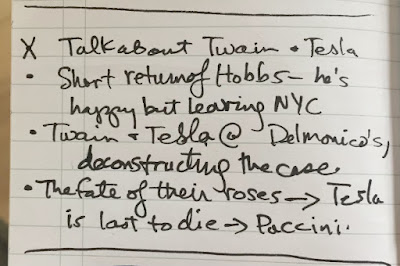 X Talk about Twain + Tesla
• Short return of Hobbs – he's
happy but leaving NYC
• Twain + Tesla @ Delmonico's,
deconstructing the case.
• The fate of their roses → Tesla
is last to die → Puccini.